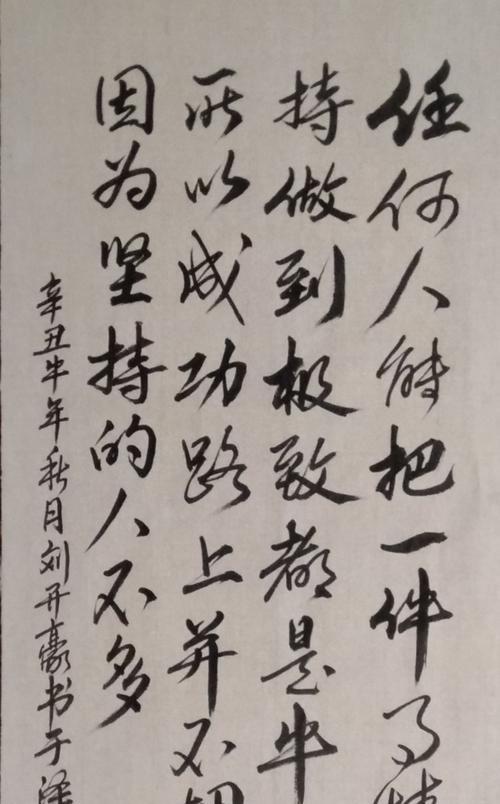 任何人能把一件事
持做到极致都是牛
所以成功路上并不
因为坚持的人不多
辛丑牛年秋月刘开豪书于